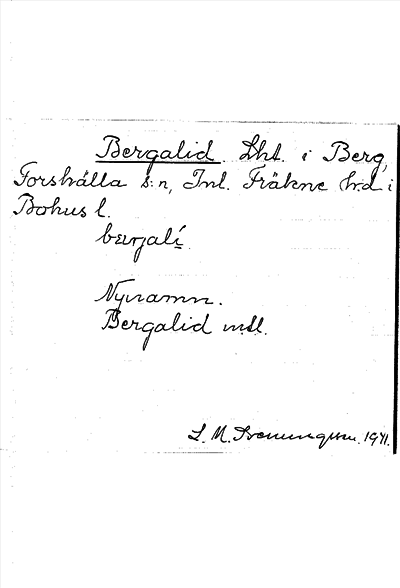 Bergalid. Lht. i Berg,
Forshälla s:n, Inl. Fräkne hd i
Bohus l.
bærjalí
Nynamn.
Bergalid
L. M. Svenungsson. 1941.